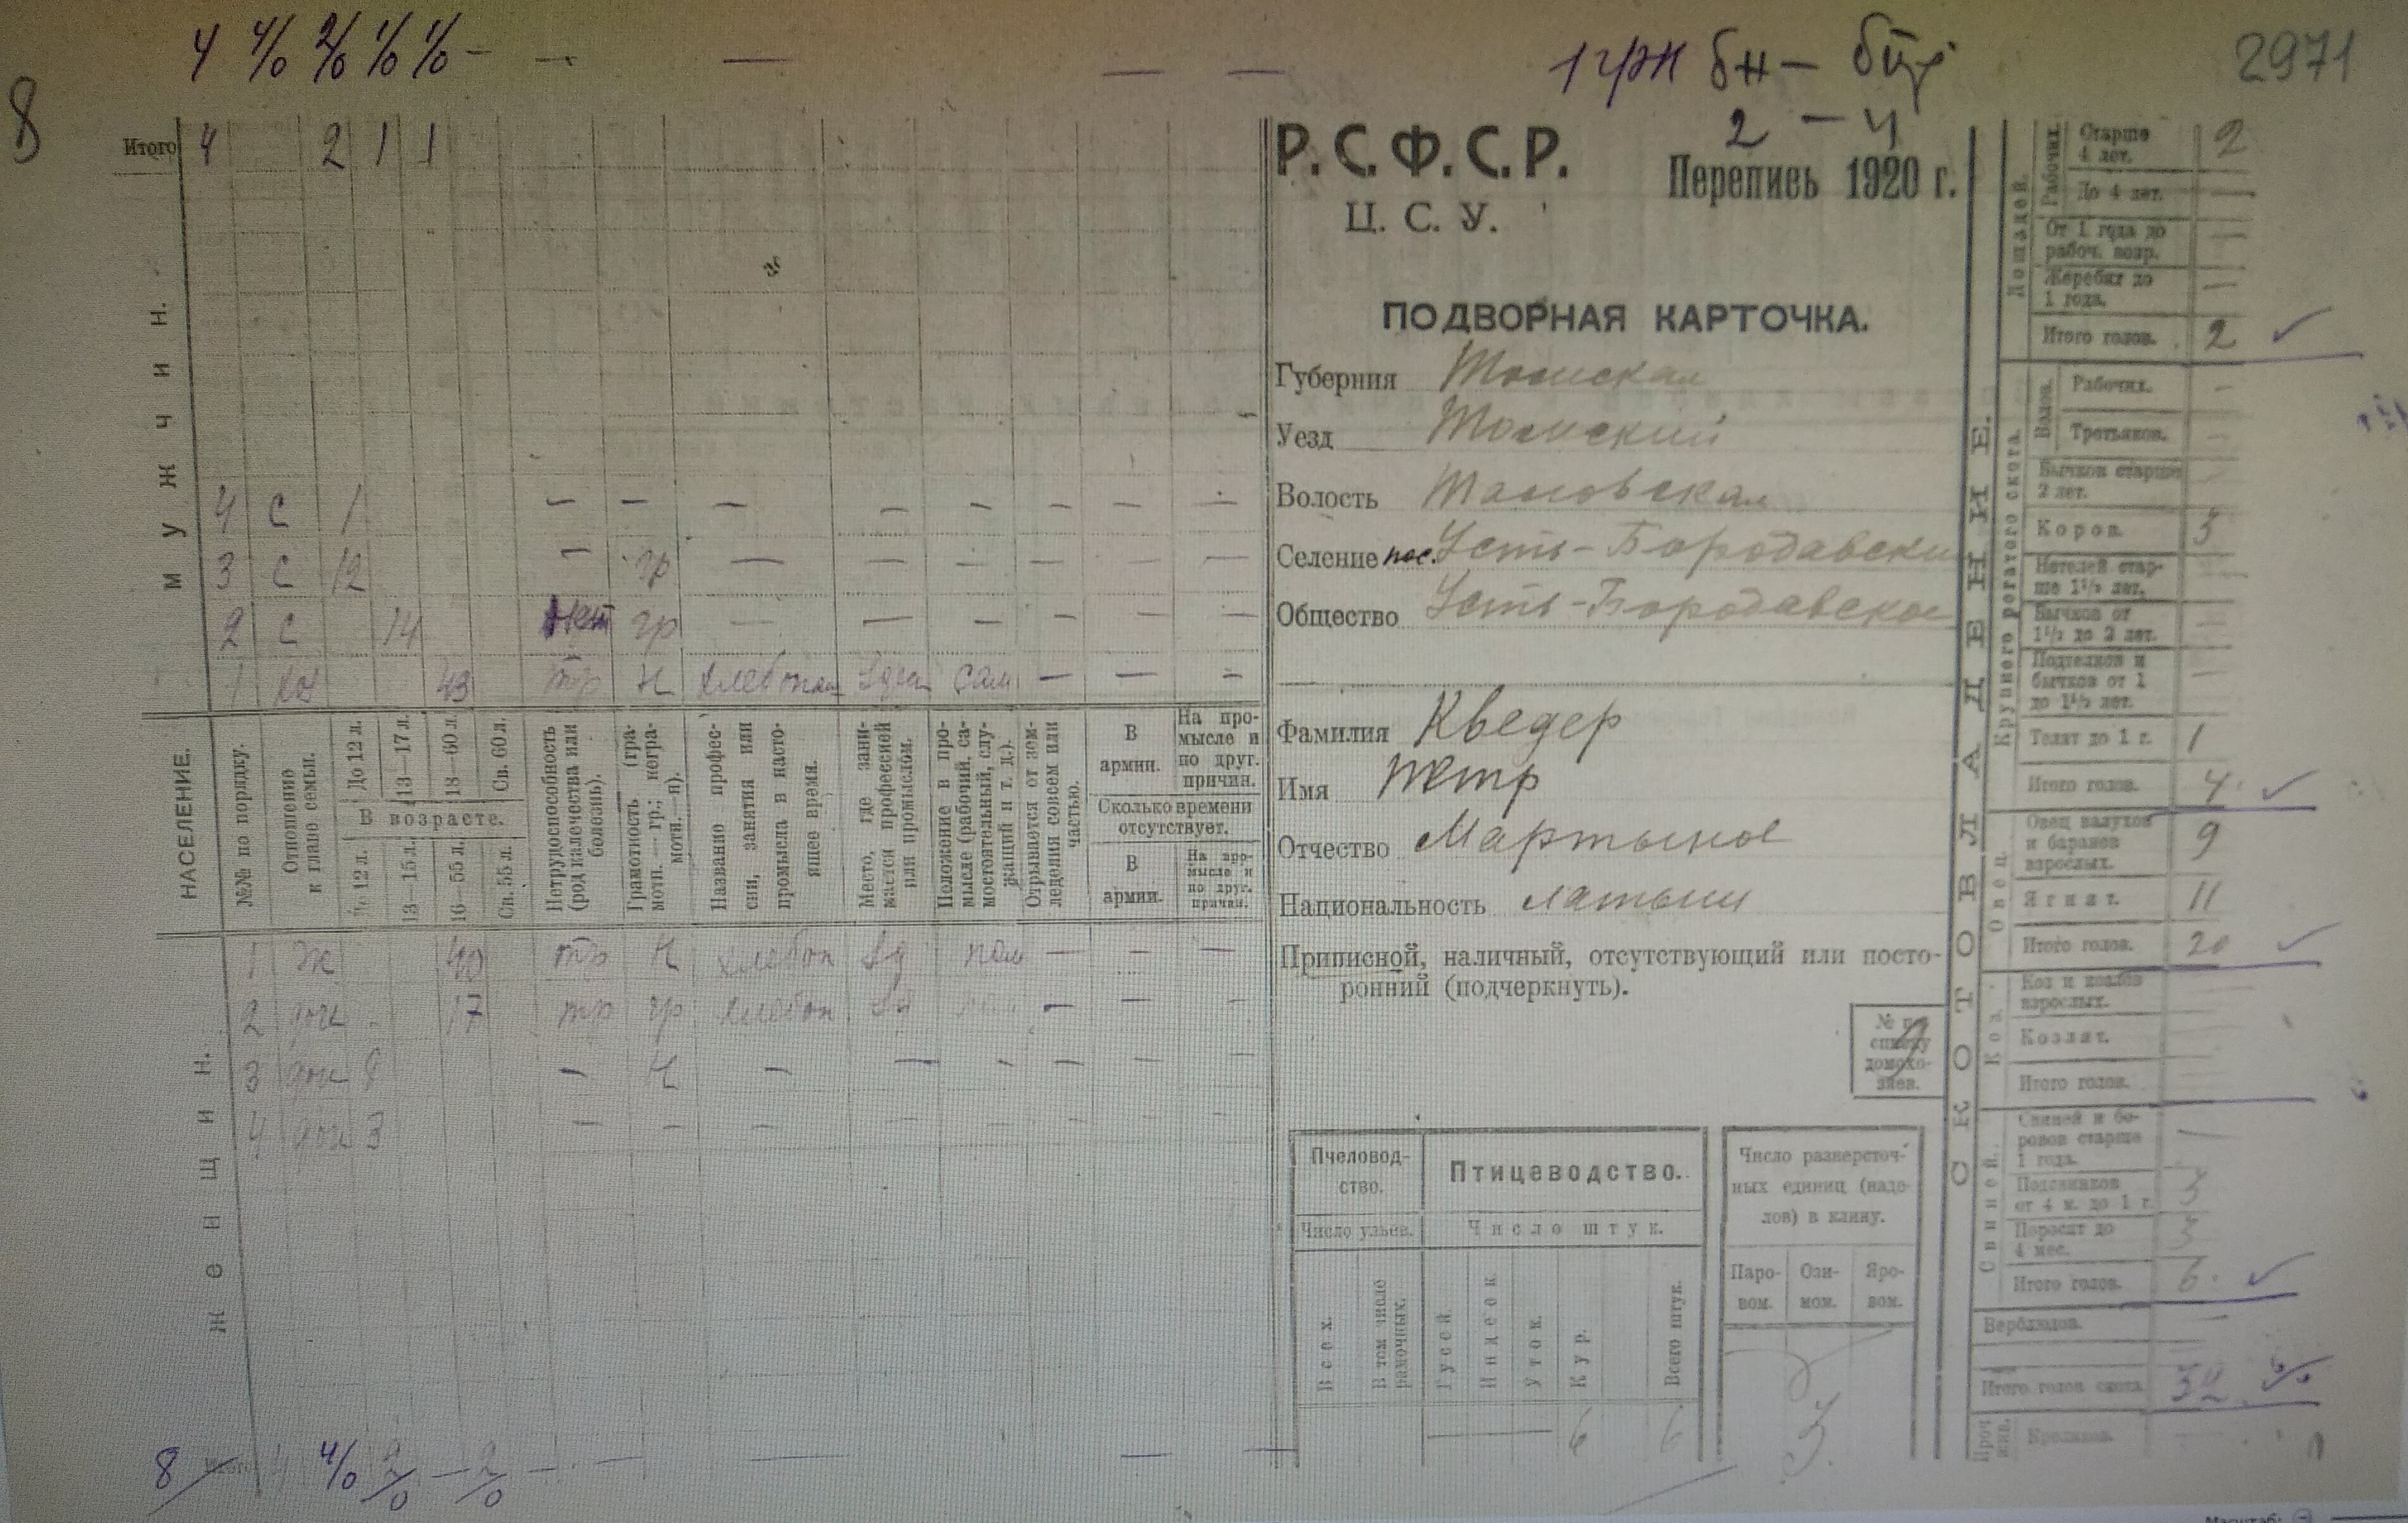 4 4/0 2/0 1/0 1/0 — — — — —
1 грн бн —
2971
8
2 — 4
Итого 4 2 1 1
М у ж ч и н.
4 с 1 — — — — — — — —
3 с 12 — гр — — — — — —
2 с 14 гр — — — — — —
1 хоз 43 тр н хлебопаш сам — — —
НАСЕЛЕНИЕ.
№№ по порядку.
Отношение к главе семьи.
До 12 л.
13—17 л.
18—60 л.
Св. 60 л.
В возрасте.
До 12 л.
13—15 л.
16—55 л.
Св. 55 л.
Нетрудоспособность (род калечества или болезнь).
Грамотность (грамотн. — гр.; неграмотн. — н).
Название профессии, занятия или промысла в настоящее время.
Место, где занимается профессией или промыслом.
Положение в промысле (рабочий, самостоятельный, служащий и т. д.).
Отрывается от земледелия совсем или частью.
В армии.
На промысле и по друг. причин.
Сколько времени отсутствует.
В армии.
На промысле и по друг. причин.
1 ж 40 тр н хлебоп пом — — —
2 доч 17 тр гр хлебоп — — —
3 доч 8 — н — — — — — —
4 доч 3 — — — — — — — —
Ж е н щ и н.
8 Итого 4 4/0 2/0 — 2/0 — — — —
Р. С. Ф. С. Р.
Перепись 1920 г.
Ц. С. У.
ПОДВОРНАЯ КАРТОЧКА.
Губерния Томская
Уезд Томский
Волость
Селение пос. Усть-Бородавский
Общество Усть-Бородавское
Фамилия Кведер
Имя Петр
Отчество Мартынов
Национальность латыш
Приписной, наличный, отсутствующий или посто-
ронний (подчеркнуть).
№ по
списку
домохо-
зяев.
Пчеловод-
ство.
Птицеводство.
Число ульев.
Число штук.
Всех.
В том числе рамочных.
Гусей.
Индеек.
Уток.
Кур.
Всего штук.
— 6 6
Число разверсточ-
ных единиц (наде-
лов) в клину.
Паро-
вом.
Ози-
мом.
Яро-
вом.
СКОТОВЛАДЕНИЕ.
Лошадей.
Рабочих.
Старше
4 лет. 2
До 4 лет. —
От 1 года до
рабоч. возр. —
Жеребят до
1 года. —
Итого голов. 2
Крупного рогатого скота.
Волов.
Рабочих. —
Третьяков. —
Бычков старше
2 лет.
Коров. 3
Нетелей стар-
ше 1½ лет. —
Бычков от
1½ до 2 лет. —
Подтелков и
бычков от 1
до 1½ лет. —
Телят до 1 г. 1
Итого голов. 4
Овец.
Овец валухов
и баранов
взрослых. 9
Ягнят. 11
Итого голов. 20
Коз.
Коз и козлов
взрослых.
Козлят.
Итого голов.
Свиней.
Свиней и бо-
ровов старше
1 года. —
Подсвинков
от 4 м. до 1 г. 3
Поросят до
4 мес. 3
Итого голов. 6
Верблюдов.
Итого голов скота. 32
Кроликов.
Масштаб: